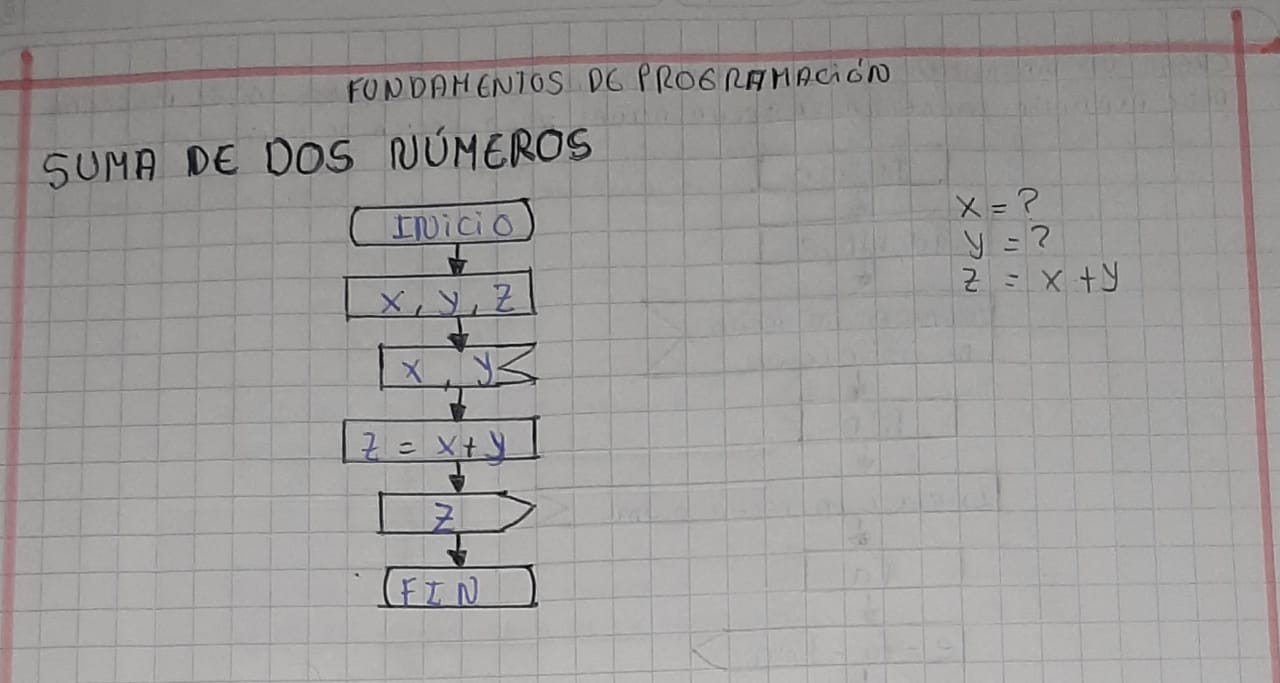 FUNDAMENTOS DE PROGRAMACIÓN
SUMA DE DOS NÚMEROS
INICIO
x, y, z
x, y
z = x+y
z
FIN
x = ?
y = ?
z = x + y